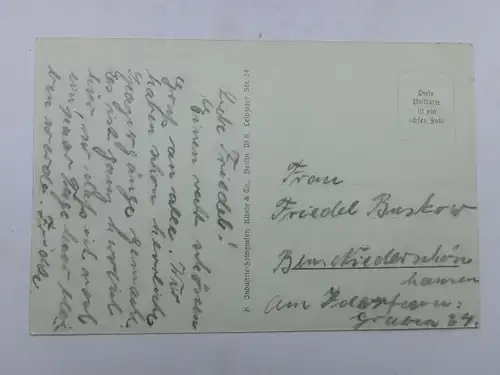 Liebe Friedel!
Einen recht schönen
Gruß von allen. Wir
haben schon herrliche
Spaziergänge gemacht.
Es ist ganz herrlich
hier, so daß ich noch
ein paar Tage hier blei
ben werde. Frieda.
R. Industrie-Fotografen Klinke & Co., Berlin W.8, Leipziger Str. 24
Diese
Postkarte
ist ein
echtes Foto
Frau
Friedel Buskow
Bln. Niederschön
hausen
Am Idersfenn-
graben 24.